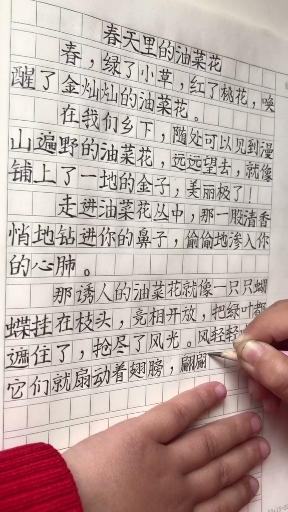 春天里的油菜花
春，绿了小草，红了桃花，唤
醒了金灿灿的油菜花。
在我们乡下，随处可以见到漫
山遍野的油菜花，远远望去，就像
铺上了一地的金子，美丽极了！
走进油菜花丛中，那一股清香
悄地钻进你的鼻子，偷偷地渗入你
的心肺。
那诱人的油菜花就像一只只蝴
蝶挂在枝头，竞相开放，把绿叶都
遮住了，抢尽了风光。风轻轻
它们就扇动着翅膀，翩翩